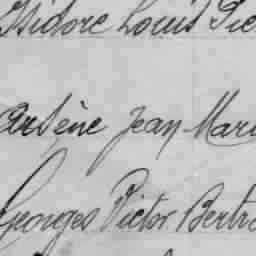 Isidore Louis Pie
Arsène Jean Mari
Georges Victor Bertr